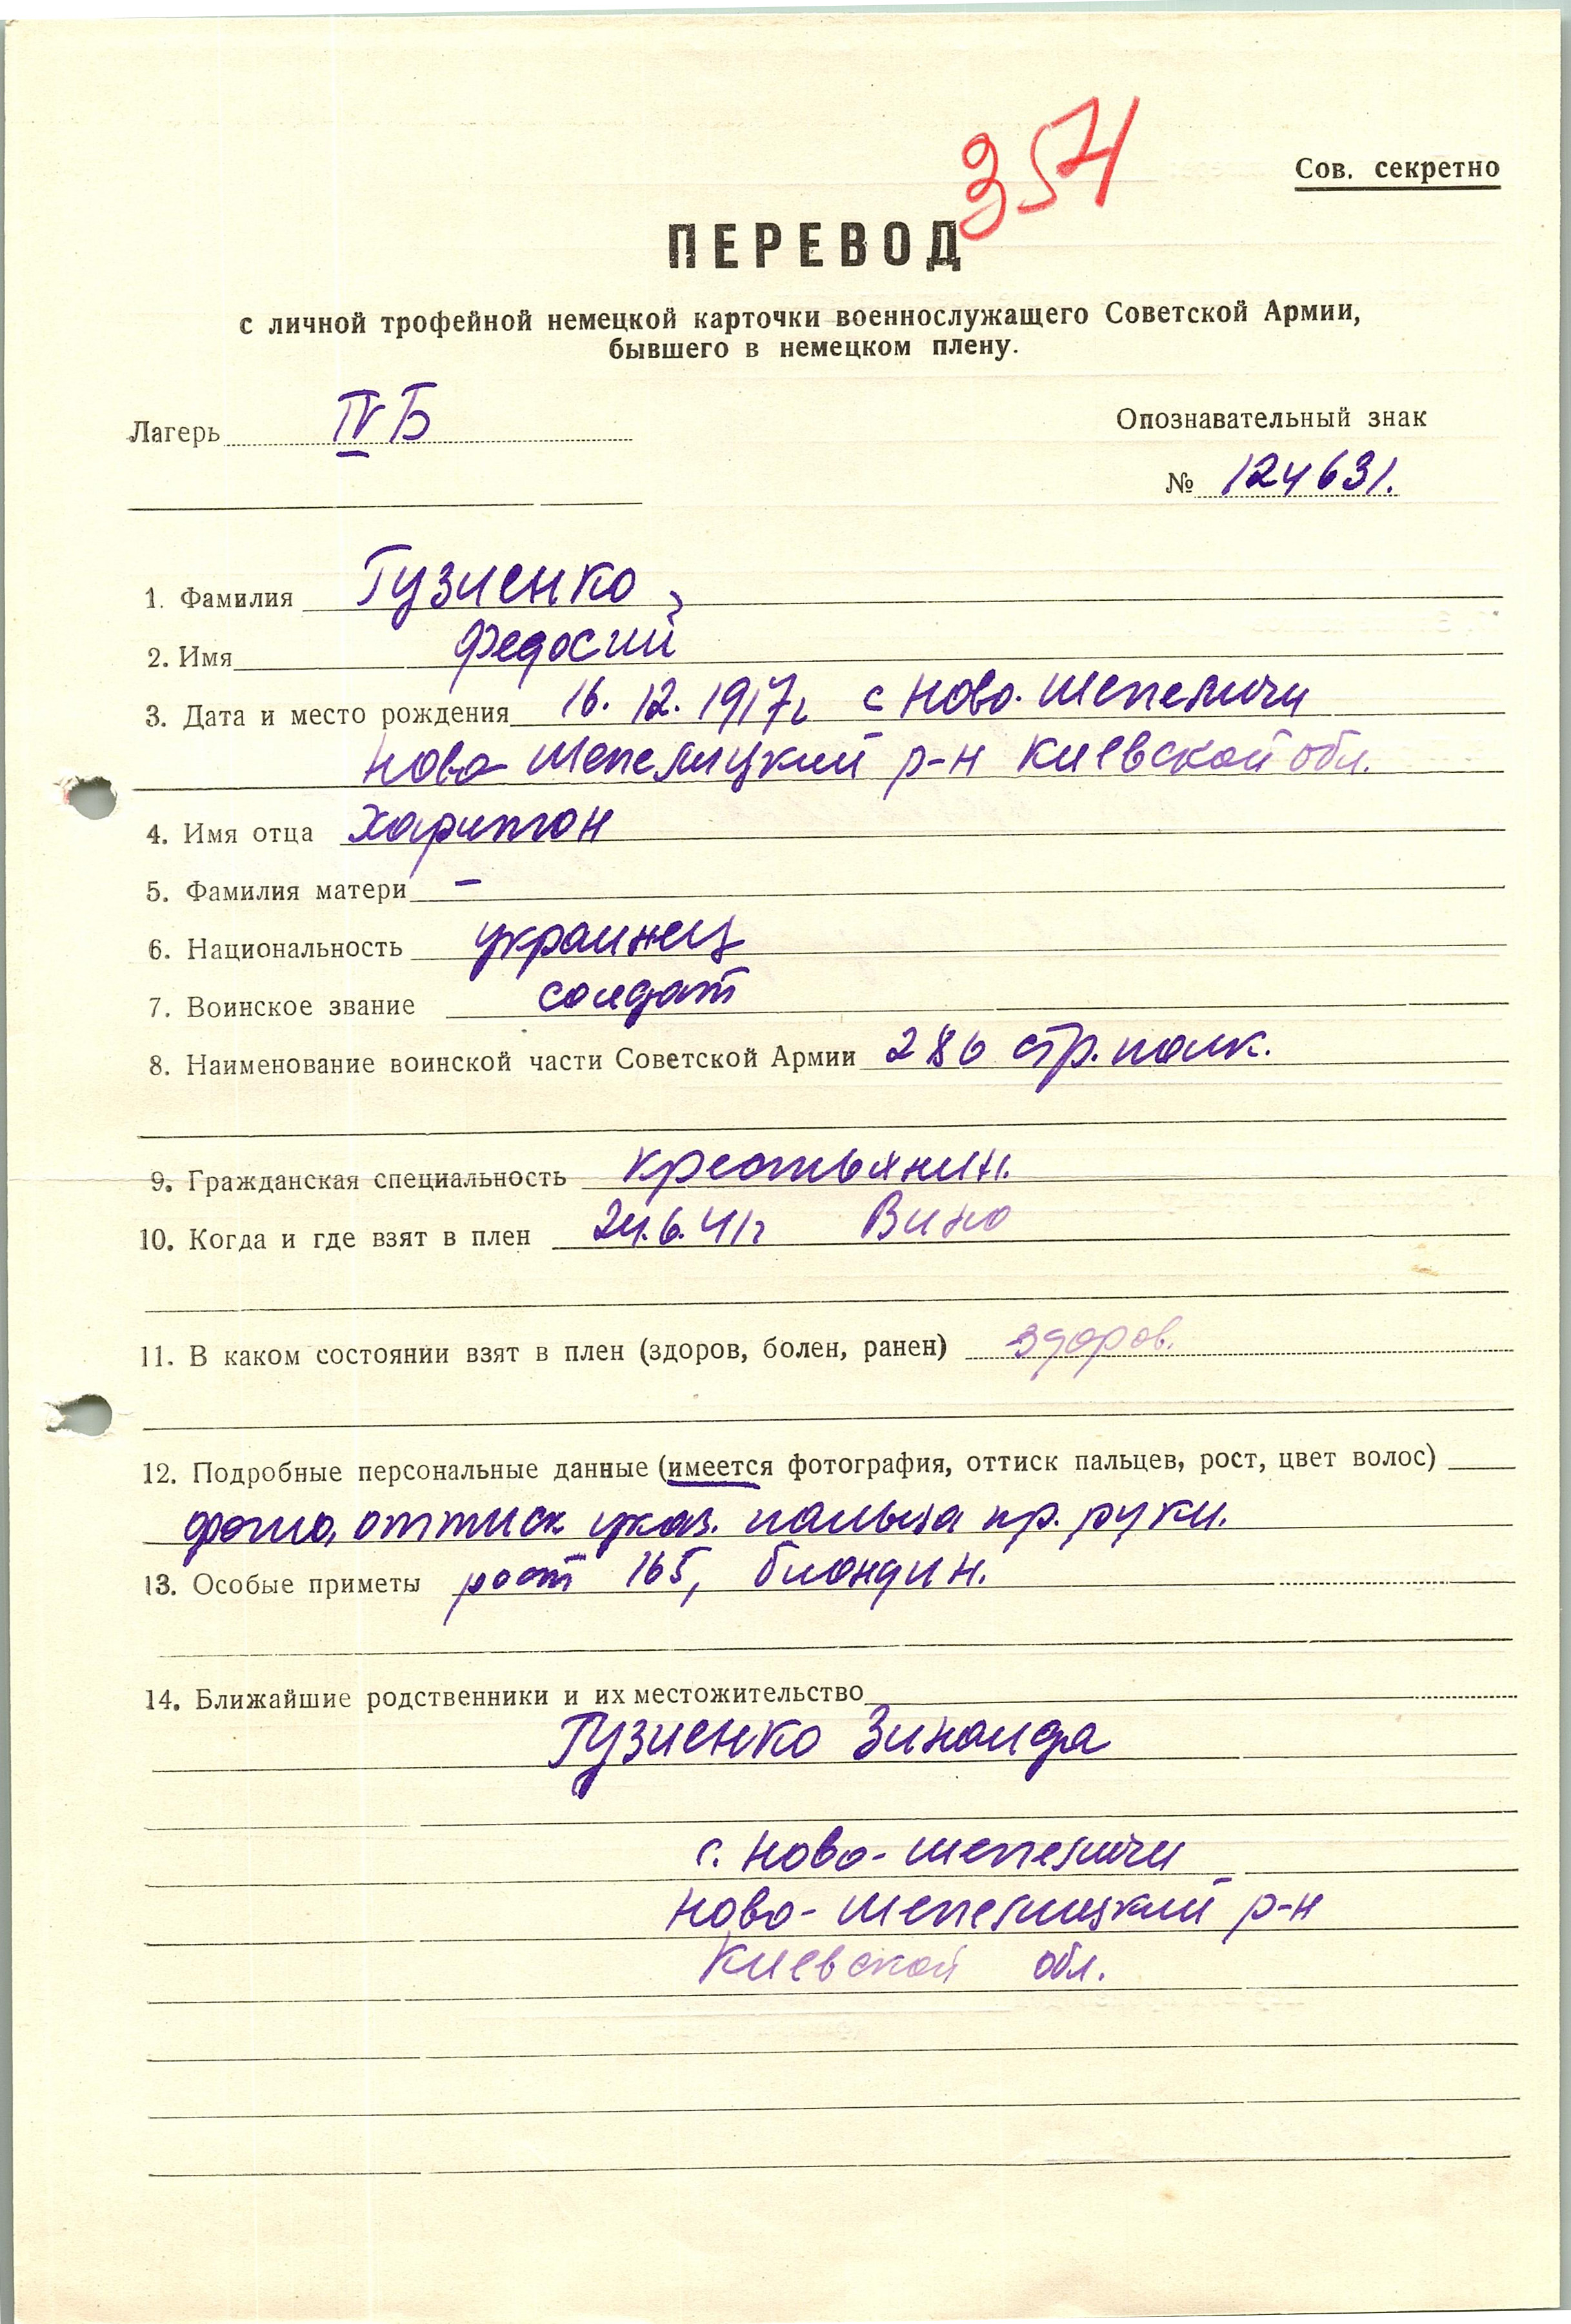 354
Сов. секретно
ПЕРЕВОД
с личной трофейной немецкой карточки военнослужащего Советской Армии,
бывшего в немецком плену.
Лагерь IV Б
Опознавательный знак
№ 124631.
1. Фамилия Гузиенко
2. Имя Федосий
3. Дата и место рождения 16.12.1917г с Ново-Шепеличи
Ново Шепелицкий р-н Киевской обл.
4. Имя отца Харитон
5. Фамилия матери –
6. Национальность украинец
7. Воинское звание солдат
8. Наименование воинской части Советской Армии 286 стр. полк.
9. Гражданская специальность крестьянин.
10. Когда и где взят в плен 24.6.41г Вино
11. В каком состоянии взят в плен (здоров, болен, ранен) здоров.
12. Подробные персональные данные (имеется фотография, оттиск пальцев, рост, цвет волос)
фото, оттиск указ. пальца пр. руки.
13. Особые приметы рост 165, блондин.
14. Ближайшие родственники и их местожительство
Гузиенко Зинаида
с. Ново-Шепеличи
Ново-Шепелицкий р-н
Киевской обл.